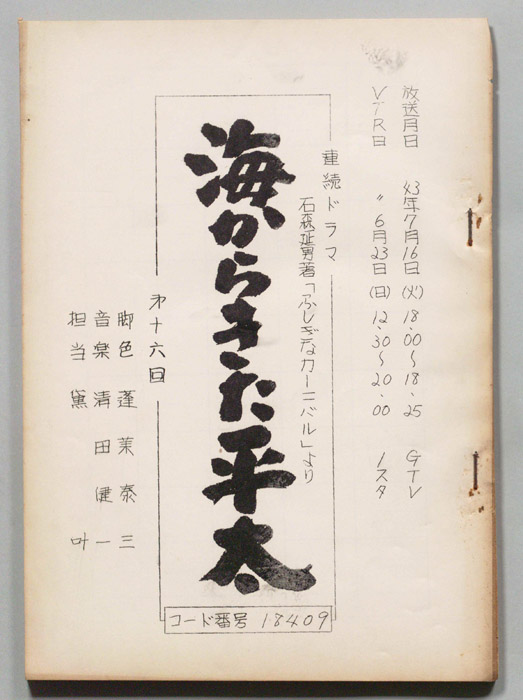 放送月日 43年7月16日(火)18.00〜18.25 GTV
VTR日 〃 6月23日(日)12.30〜20.00 1スタ
連続ドラマ
石森延男著「ふしぎなカーニバル」より
海からきた平太
オ十六回
脚色 蓬莱泰三
音楽 清田健一
担当 黛叶
コード番号 18409